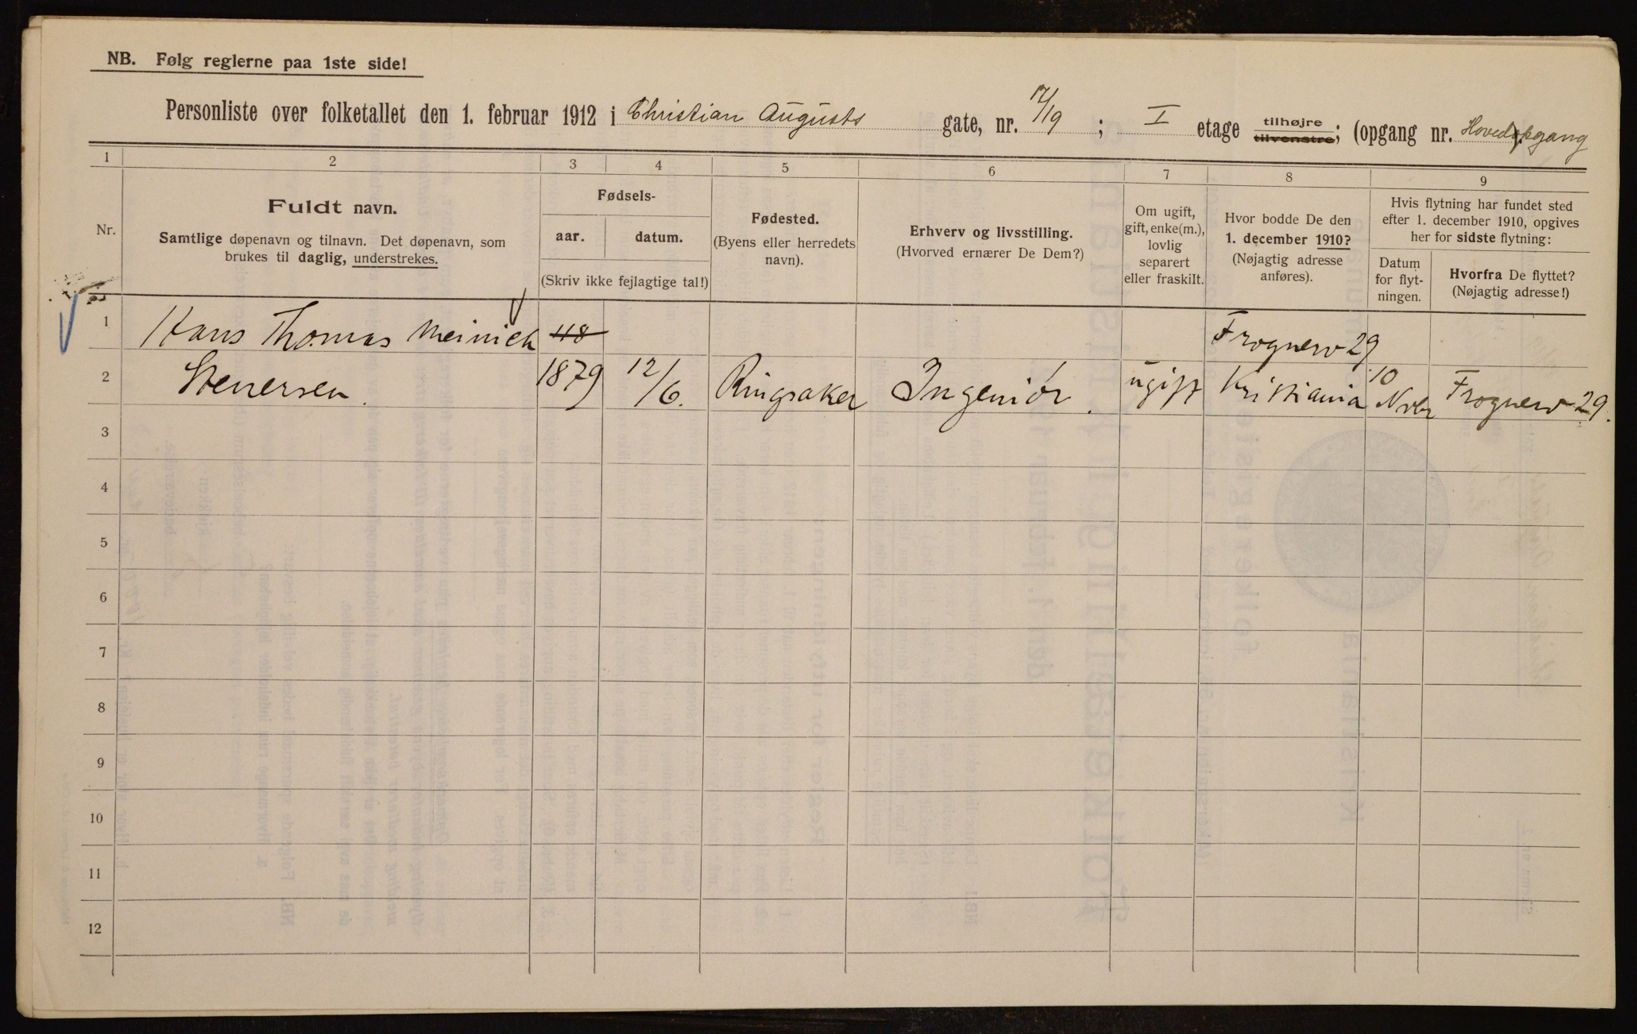 NB. Følg reglerne paa 1ste side!
Personliste over folketallet den 1. februar 1912 i Christian Augusts gate, nr. 17/19; I etage tilhøjre tilvenstre; (opgang nr. Hovedopgang
1 2 3 4 5 6 7 8 9
Nr.
Fuldt navn.
Samtlige døpenavn og tilnavn. Det døpenavn, som
brukes til daglig, understrekes.
Fødsels-
aar. datum.
(Skriv ikke fejlagtige tal!)
Fødested.
(Byens eller herredets
navn).
Erhverv og livsstilling.
(Hvorved ernærer De Dem?)
Om ugift,
gift, enke(m.),
lovlig
separert
eller fraskilt.
Hvor bodde De den
1. december 1910?
(Nøjagtig adresse
anføres).
Hvis flytning har fundet sted
efter 1. december 1910, opgives
her for sidste flytning:
Datum
for flyt-
ningen.
Hvorfra De flyttet?
(Nøjagtig adresse!)
1 Hans Thomas Meinich 48 Frognerv 29
2 Stenersen. 1879 12/6. Ringsaker Ingeniør. ugift Kristiania 10 Nvbr Frognerv 29.
3
4
5
6
7
8
9
10
11
12